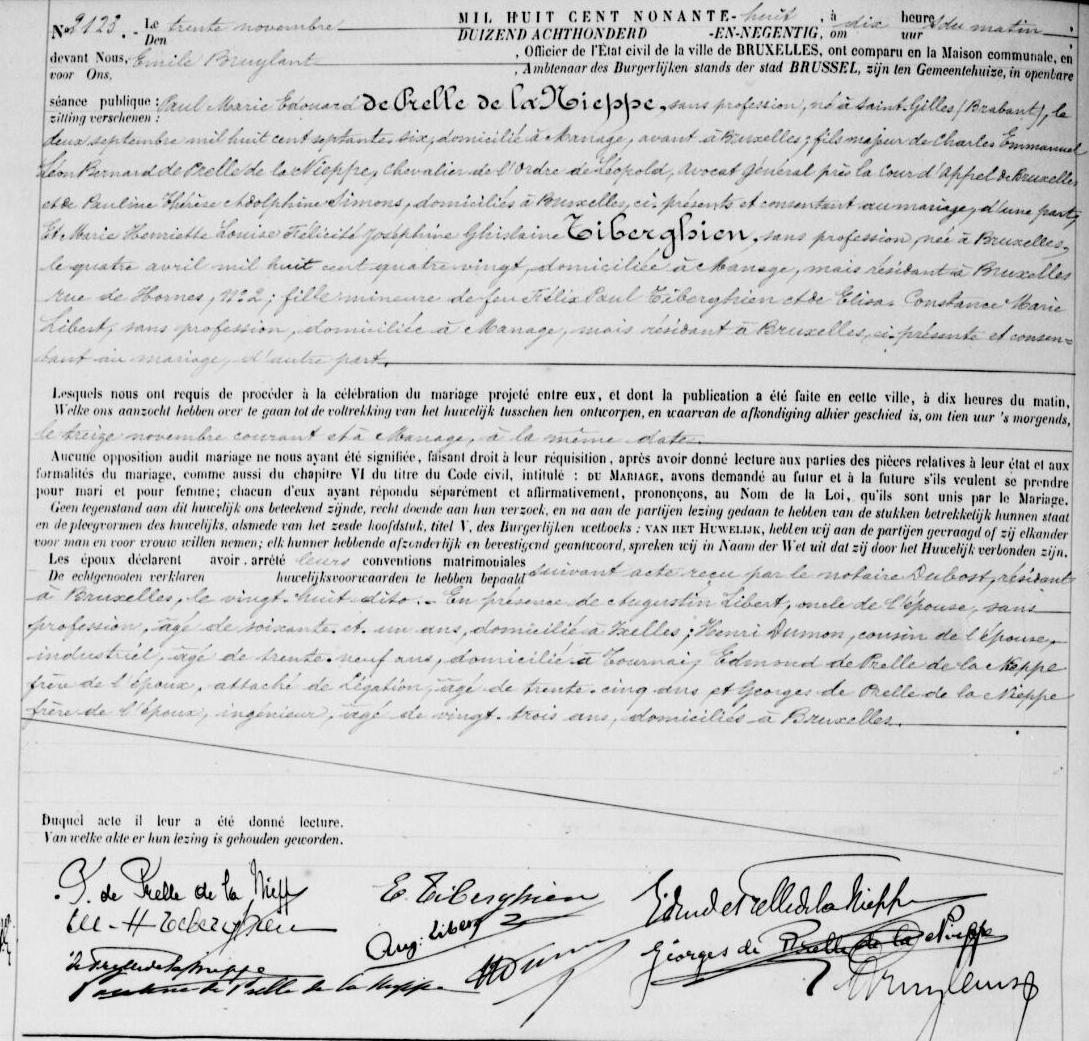 No 2123. - Le trente novembre MIL HUIT CENT NONANTE-huit, à dix heures du matin.
Den DUIZEND ACHTHONDERD -EN-NEGENTIG, om uur
devant Nous, Emile Bruylant, Officier de l'État civil de la ville de BRUXELLES, ont comparu en la Maison communale, en
voor Ons, , Ambtenaar des Burgerlijken stands der stad BRUSSEL, zijn ten Gemeentehuize, in openbare
séance publique : Paul Marie Edouard de Prelle de la Nieppe, sans profession, né à Saint-Gilles (Brabant), le
zitting verschenen :
deux septembre mil huit cent septante-six, domicilié à Manage, avant à Bruxelles; fils majeur de Charles Emmanuel
Léon Bernard de Prelle de la Nieppe, Chevalier de l'Ordre de Léopold, Avocat Général près la Cour d'Appel de Bruxelles
et de Pauline Thérèse Adolphine Simons, domiciliés à Bruxelles, ci-présents et consentant au mariage, d'une part,
Et Marie Henriette Louise Félicité Joséphine Ghislaine Tiberghien, sans profession, née à Bruxelles,
le quatre avril mil huit cent quatrevingt, domiciliée à Manage, mais résidant à Bruxelles
rue de Hornes, No 2; fille mineure de feu Félix Paul Tiberghien et de Elisa Constance Marie
Libert, sans profession, domiciliée à Manage, mais résidant à Bruxelles, ci-présente et consen=
tant au mariage, d'autre part.
Lesquels nous ont requis de procéder à la célébration du mariage projeté entre eux, et dont la publication a été faite en cette ville, à dix heures du matin,
Welke ons aanzocht hebben over te gaan tot de voltrekking van het huwelijk tusschen hen ontworpen, en waarvan de afkondiging alhier geschied is, om tien uur 's morgends,
le treize novembre courant et à Manage, à la même date.
Aucune opposition audit mariage ne nous ayant été signifiée, faisant droit à leur réquisition, après avoir donné lecture aux parties des pièces relatives à leur état et aux
formalités du mariage, comme aussi du chapitre VI du titre du Code civil, intitulé : DU MARIAGE, avons demandé au futur et à la future s'ils veulent se prendre
pour mari et pour femme; chacun d'eux ayant répondu séparément et affirmativement, prononçons, au Nom de la Loi, qu'ils sont unis par le Mariage.
Geen tegenstand aan dit huwelijk ons beteekend zijnde, recht doende aan hun verzoek, en na aan de partijen lezing gedaan te hebben van de stukken betrekkelijk hunnen staat
en de pleegvormen des huwelijks, alsmede van het zesde hoofdstuk, titel V, des Burgerlijken wetboeks : VAN HET HUWELIJK, hebben wij aan de partijen gevraagd of zij elkander
voor man en voor vrouw willen nemen; elk hunner hebbende afzonderlijk en bevestigend geantwoord, spreken wij in Naam der Wet uit dat zij door het Huwelijk verbonden zijn.
Les époux déclarent avoir arrêté leurs conventions matrimoniales suivant acte reçu par le notaire Dubost, résidant
De echtgenooten verklaren huwelijksvoorwaarden te hebben bepaald
à Bruxelles, le vingt-huit dito. - En présence de Augustin Libert, oncle de l'épouse, sans
profession, âgé de soixante-et-un ans, domicilié à Ixelles; Henri Dumon, cousin de l'épouse,
industriel, âgé de trente-neuf ans, domicilié à Tournai, Edmond de Prelle de la Nieppe
frère de l'époux, attaché de Légation, âgé de trente-cinq ans et Georges de Prelle de la Nieppe
frère de l'époux, ingénieur, âgé de vingt-trois ans, domiciliés à Bruxelles.
Duquel acte il leur a été donné lecture.
Van welke akte er hun lezing is gehouden geworden.
P. de Prelle de la Niepp E. Tiberghien Edmd de Prelle de la Nieppe
M-H Tiberghien Aug. Libert Georges de Prelle de la Nieppe
de Prelle de la Nieppe HDumon
Pauline de Prelle de la Nieppe EBruylant